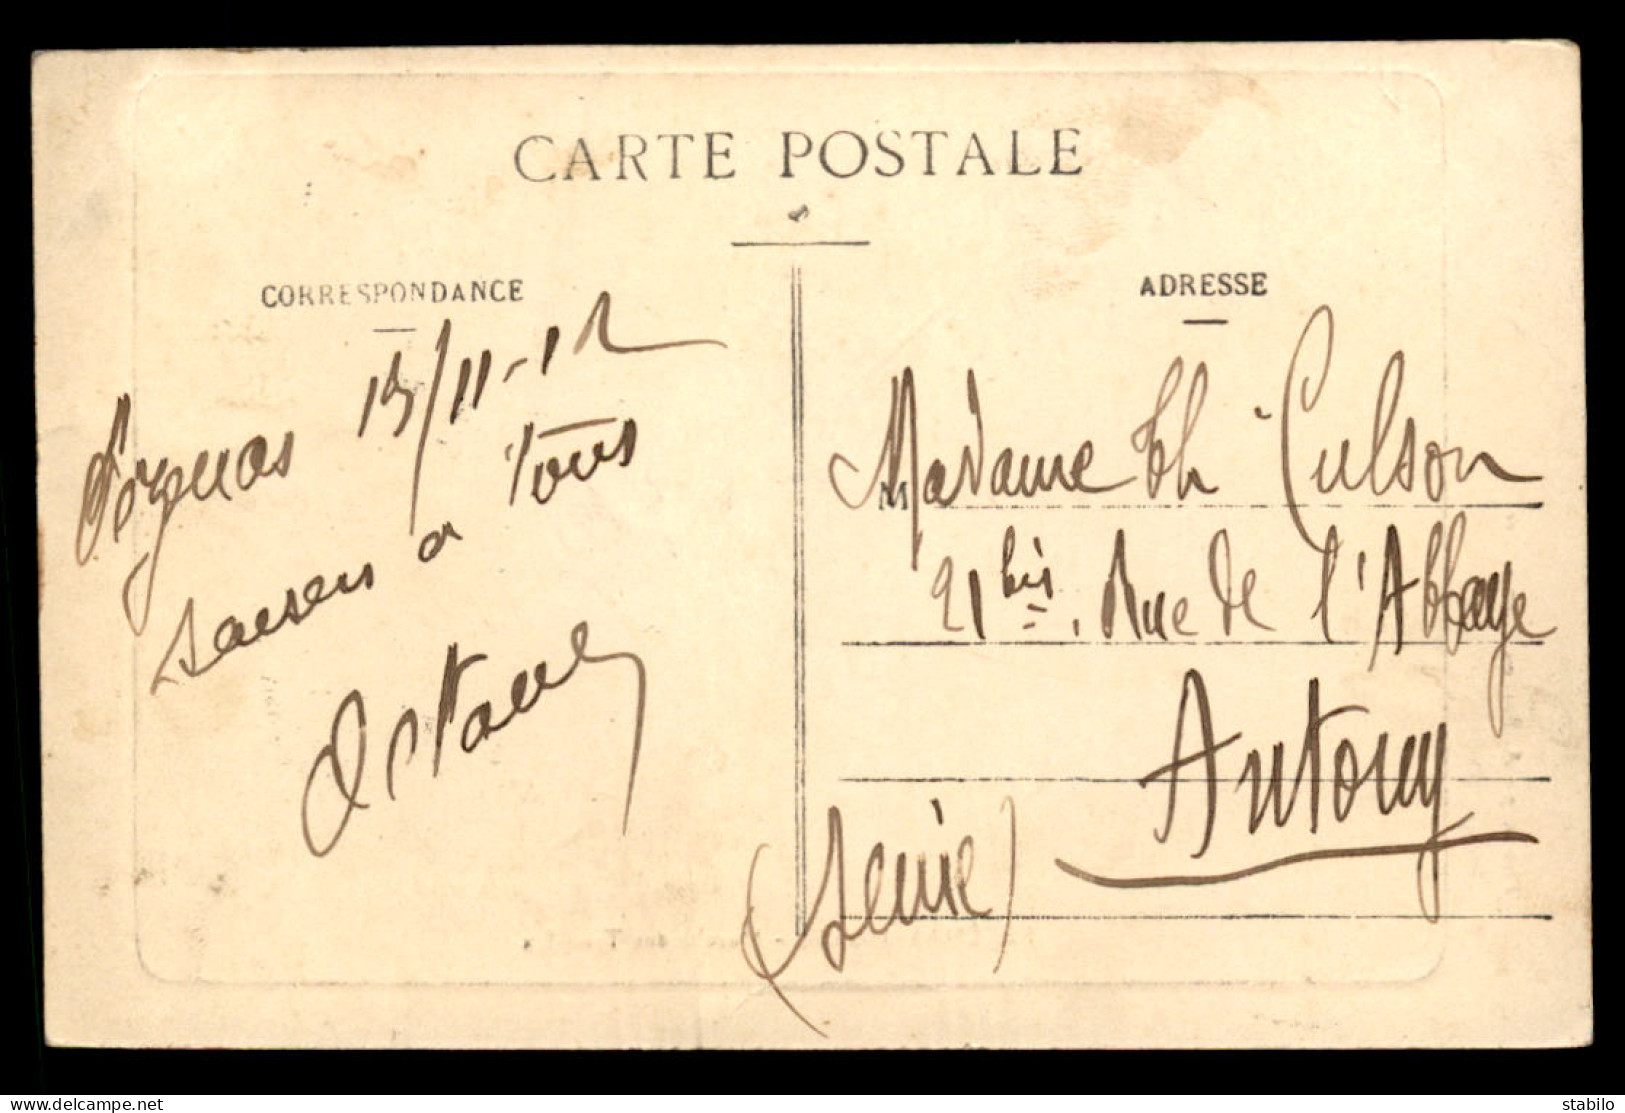 CARTE POSTALE
CORRESPONDANCE
15/11-12
a Tous
Octave
ADRESSE
Madame Th Culson
21 bis. Rue de l'Abbaye
Antony
(Seine)
www.delcampe.net
stabilo